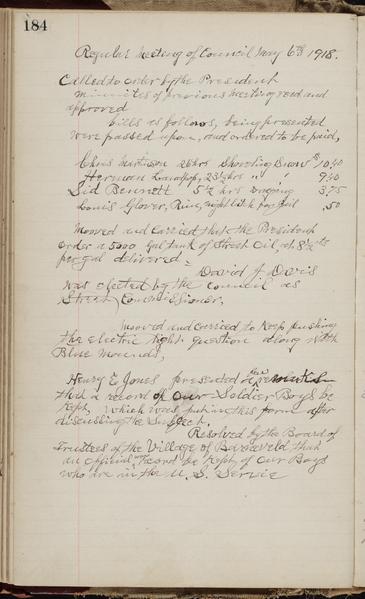 184
Regular meeting of Council May 6th 1918.
Called to order by the President
Minnites of previous meeting read and
approved
bills as follows, being presented
were passed upon, and ordered to be paid,
Chris 26 hrs Shoveling Snow $10.40
Herman 23½ hrs " " 9.40
Sid Bennett 5½ hrs 3.75
Louis Glover, Ring, night latch for Jail .50
Mooved and carried that the President
order a 5000 Gal tank of Street Oil, at 8½ cts
per gal delivered.
David J Davis
was elected by the council as
Street Commissioner.
Mooved and carried to keep pushing
the electric light question along with
Blue Mounds,
Henry E Jones presented a
that a record of our Soldier Boys be
Kept, which was put in this form after
discussing the Subject.
Resolved by the Board of
Trustees of the Village of Barneveld that
an official record be Kept of our Boys
who are in the U. S. Servic